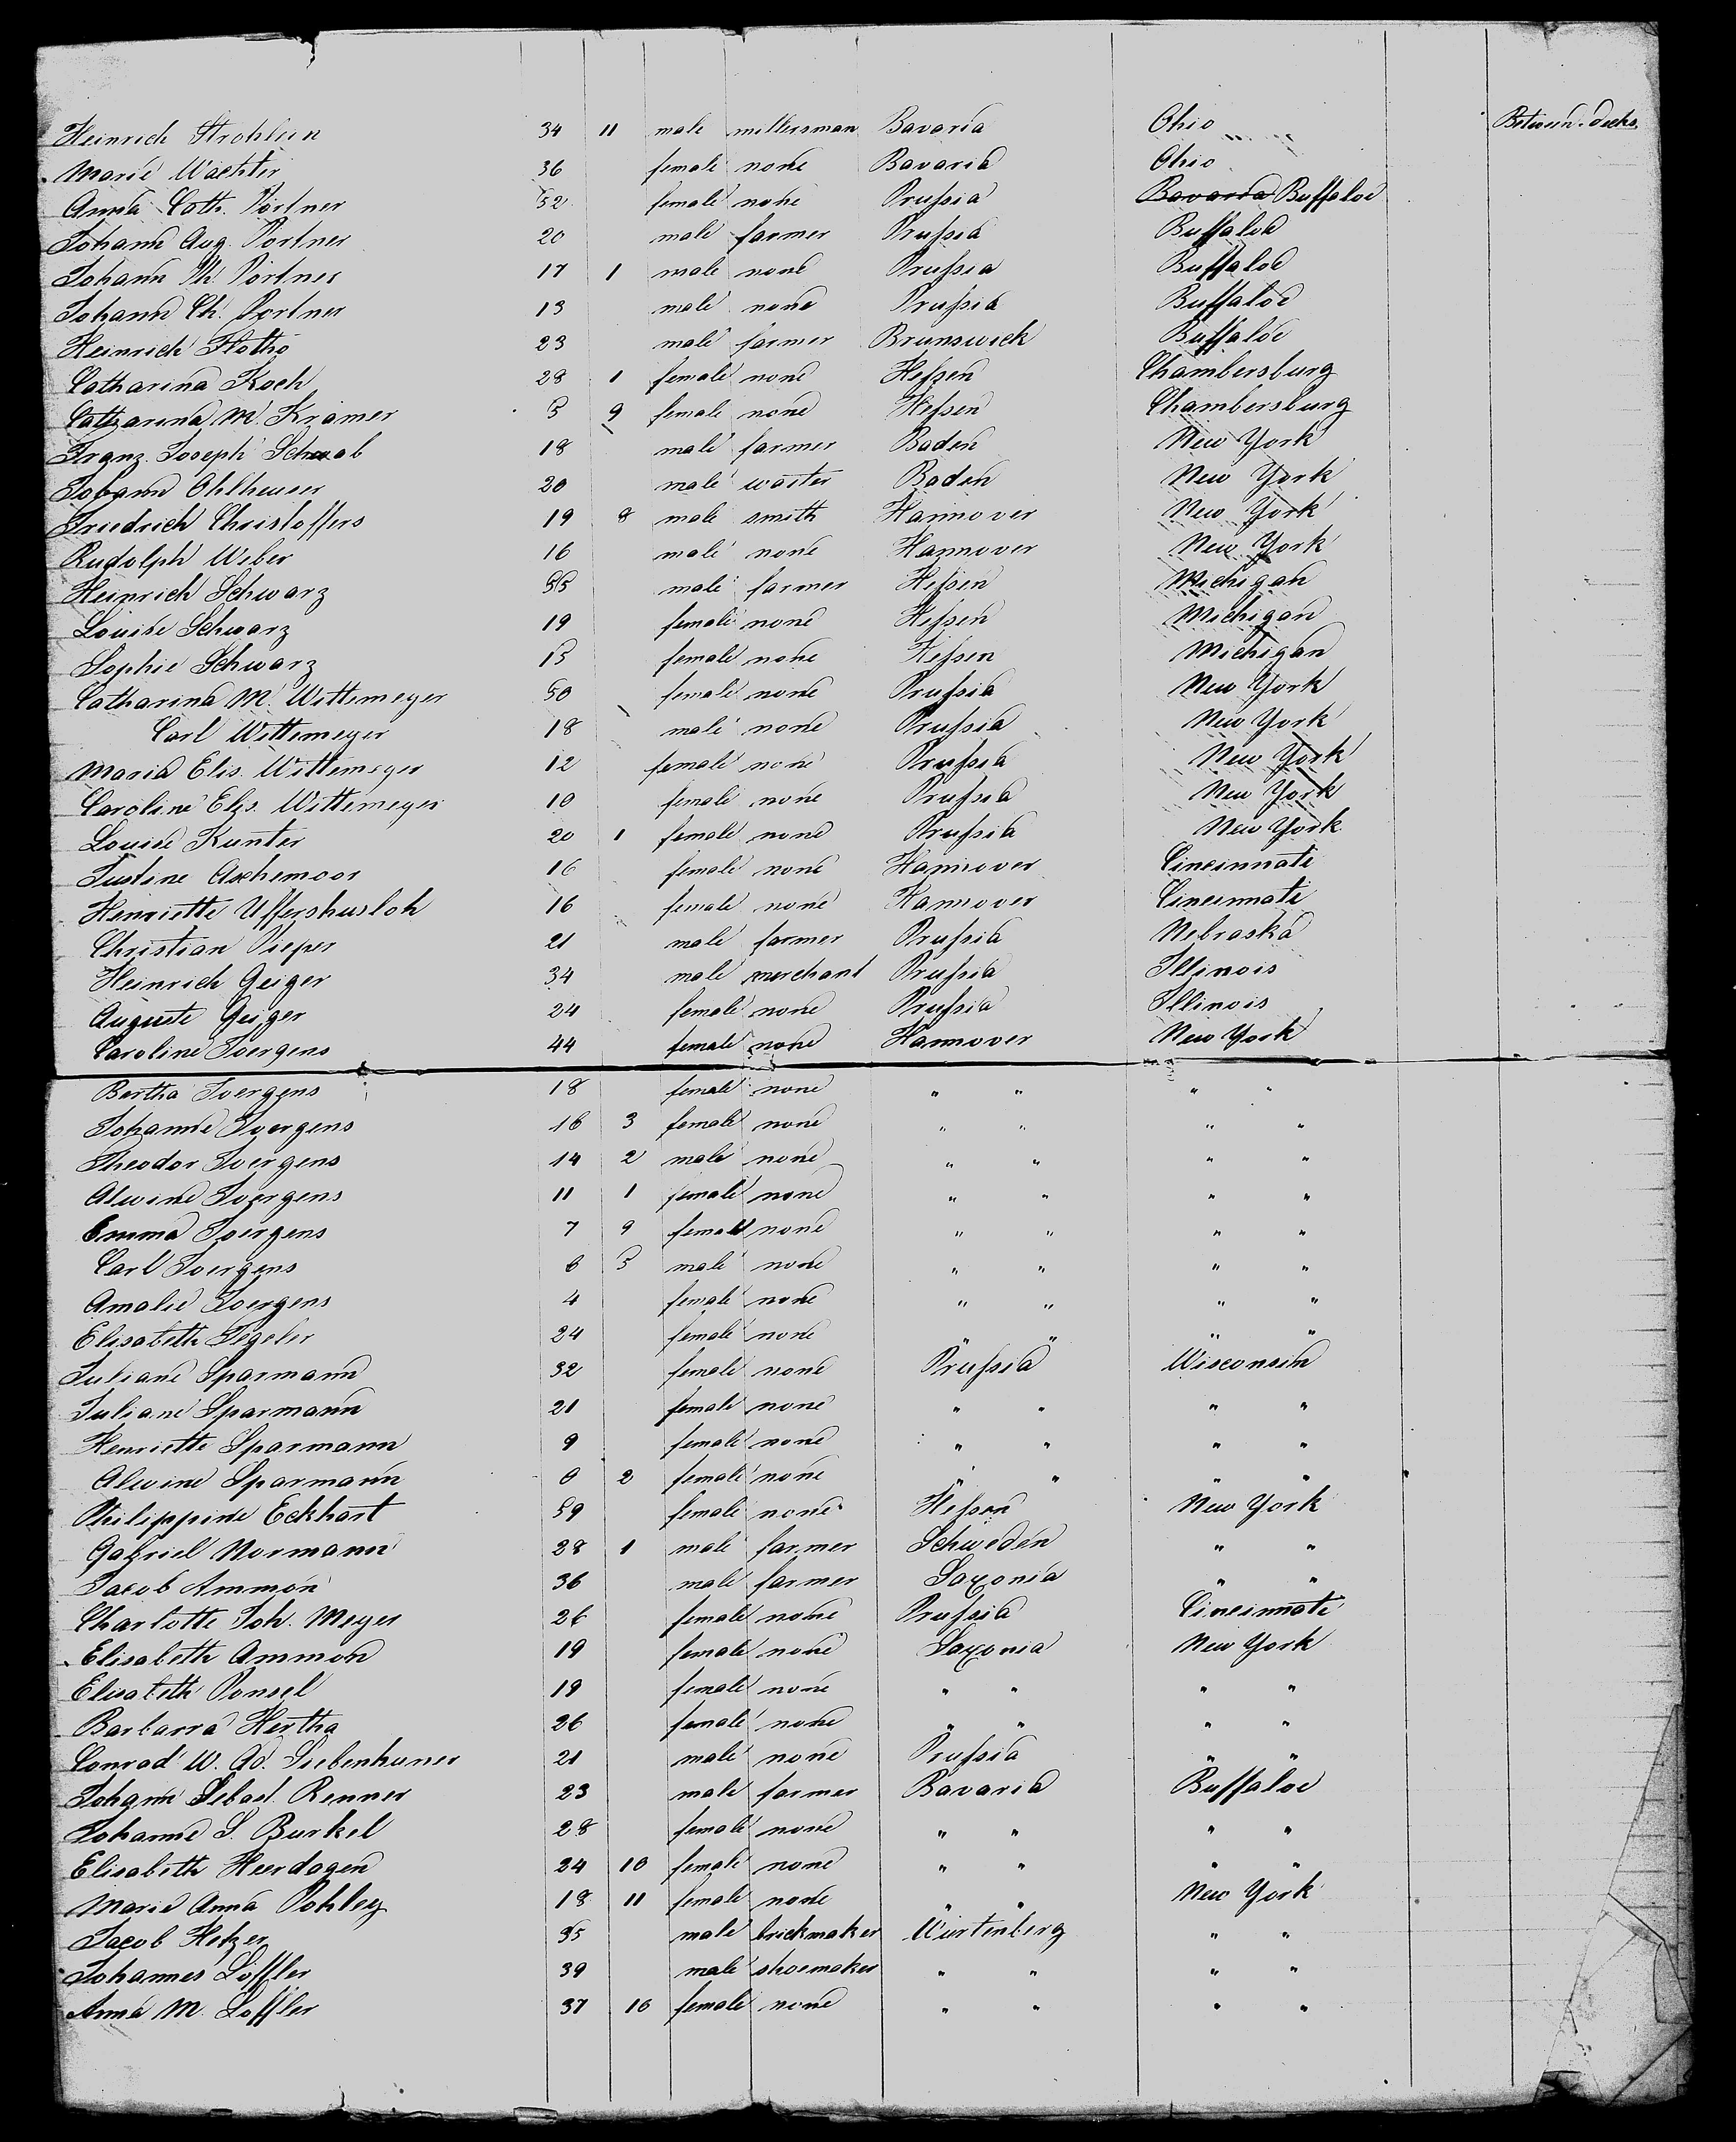 Heinrich Strohlein 34 11 male millersman Bavaria Ohio Between decks
Marie Waechter 36 female none Bavaria Ohio
Anna Cath. Pörtner 52 female none Prußia Bavaria Buffaloe
Johann Aug. Portner 20 male farmer Prußia Buffaloe
Johann Ph. Pörtner 17 1 male none Prußia Buffaloe
Johann Ch. Portner 13 male none Prußia Buffaloe
Heinrich Flotho 23 male farmer Brunswick Buffaloe
Catharina Koch 28 1 female none Heßen Chambersburg
Catharina M. Kramer 5 9 female none Heßen Chambersburg
Franz Joseph Schwab 18 male farmer Baden New York
Johann Ohlheuser 20 male waiter Baden New York
Friedrich Christoffers 19 8 male smith Hannover New York
Rudolph Weber 16 male none Hannover New York
Heinrich Schwarz 55 male farmer Heßen Michigan
Louise Schwarz 19 female none Heßen Michigan
Sophie Schwarz 15 female none Heßen Michigan
Catharina M. Wittemeyer 50 female none Prußia New York
Carl Wittemeyer 18 male none Prußia New York
Maria Elis. Wittemeyer 12 female none Prußia New York
Caroline Els. Wittemeyer 10 female none Prußia New York
Louise Kunter 20 1 female none Prußia New York
Justine Aschemoor 16 female none Hannover Cincinnati
Henriette Uffershusloh 16 female none Hannover Cincinnati
Christian Pieper 21 male farmer Prußia Nebraska
Heinrich Geiger 34 male merchant Prußia Illinois
Auguste Geiger 24 female none Prußia Illinois
Caroline Joergens 44 female none Hannover New York
Bertha Joergens 18 female none " " " "
Johanne Joergens 16 3 female none " " " "
Theodor Joergens 14 2 male none " " " "
Alwine Joergens 11 1 female none " " " "
Emma Joergens 7 9 female none " " " "
Carl Joergens 6 5 male none " " " "
Amalie Joergens 4 female none " " " "
Elisabeth Tegeler 24 female none " " " "
Juliane Sparmann 32 female none Prußia Wisconsin
Juliane Sparmann 21 female none " " " "
Henriette Sparmann 9 female none " " " "
Alwine Sparmann 0 2 female none " " " "
Philippine Eckhart 59 female none Heßen New York
Gabriel Normann 28 1 male farmer Schweden " "
Jacob Ammon 36 male farmer Saxonia " "
Charlotte Joh. Meyer 26 female none Prußia Cincinnati
Elisabeth Ammon 19 female none Saxonia New York
Elisabeth Ponsel 19 female none " " " "
Barbarra Hertha 26 female none " " " "
Conrad W. Ad. Siebenhuner 21 male none Prußia " "
Johann Sebast. Renner 23 male farmer Bavaria Buffaloe
Johanne S. Burkel 28 female none " " " "
Elisabeth Heerdagen 24 10 female none " " " "
Marie Anna Pohley 18 11 female none " " New York
Jacob Hetzer 35 male brickmaker Würtenberg " "
Johannes Löffler 39 male shoemaker " " " "
Anna M. Löffler 37 10 female none " " " "